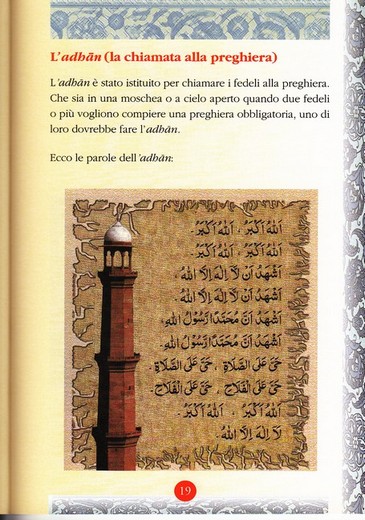 L'adhān (la chiamata alla preghiera)
L'adhān è stato istituito per chiamare i fedeli alla preghiera.
Che sia in una moschea o a cielo aperto quando due fedeli
o più vogliono compiere una preghiera obbligatoria, uno di
loro dovrebbe fare l'adhān.
Ecco le parole dell'adhān:
اَللهُ اَكْبَرُ ، اَللهُ اَكْبَرُ .
اَللهُ اَكْبَرُ ، اَللهُ اَكْبَرُ .
اَشْهَدُ اَنْ لَا اِلٰهَ اِلَّا اللهُ .
اَشْهَدُ اَنْ لَا اِلٰهَ اِلَّا اللهُ .
اَشْهَدُ اَنَّ مُحَمَّدًا رَّسُوْلُ اللهِ .
اَشْهَدُ اَنَّ مُحَمَّدًا رَّسُوْلُ اللهِ .
حَىَّ عَلَى الصَّلَاةِ ، حَىَّ عَلَى الصَّلَاةِ .
حَىَّ عَلَى الْفَلَاحِ ، حَىَّ عَلَى الْفَلَاحِ .
اَللهُ اَكْبَرُ ، اَللهُ اَكْبَرُ .
لَا اِلٰهَ اِلَّا اللهُ .
19